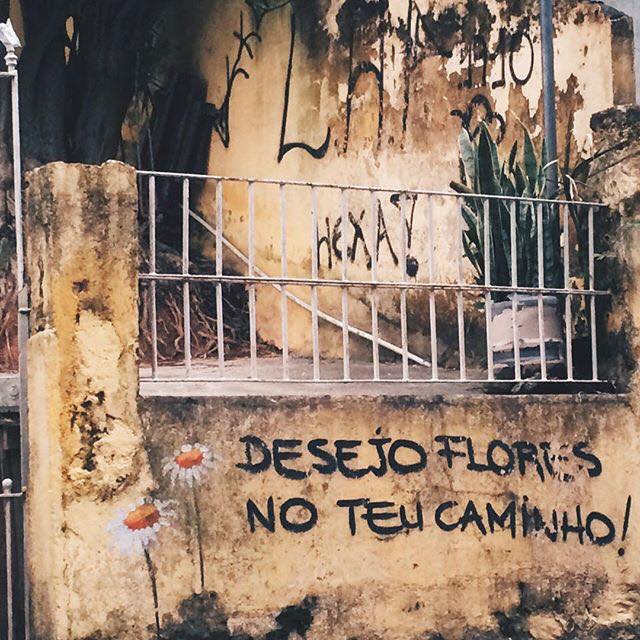 HEXA!
DESEJO FLORES
NO TEU CAMINHO!